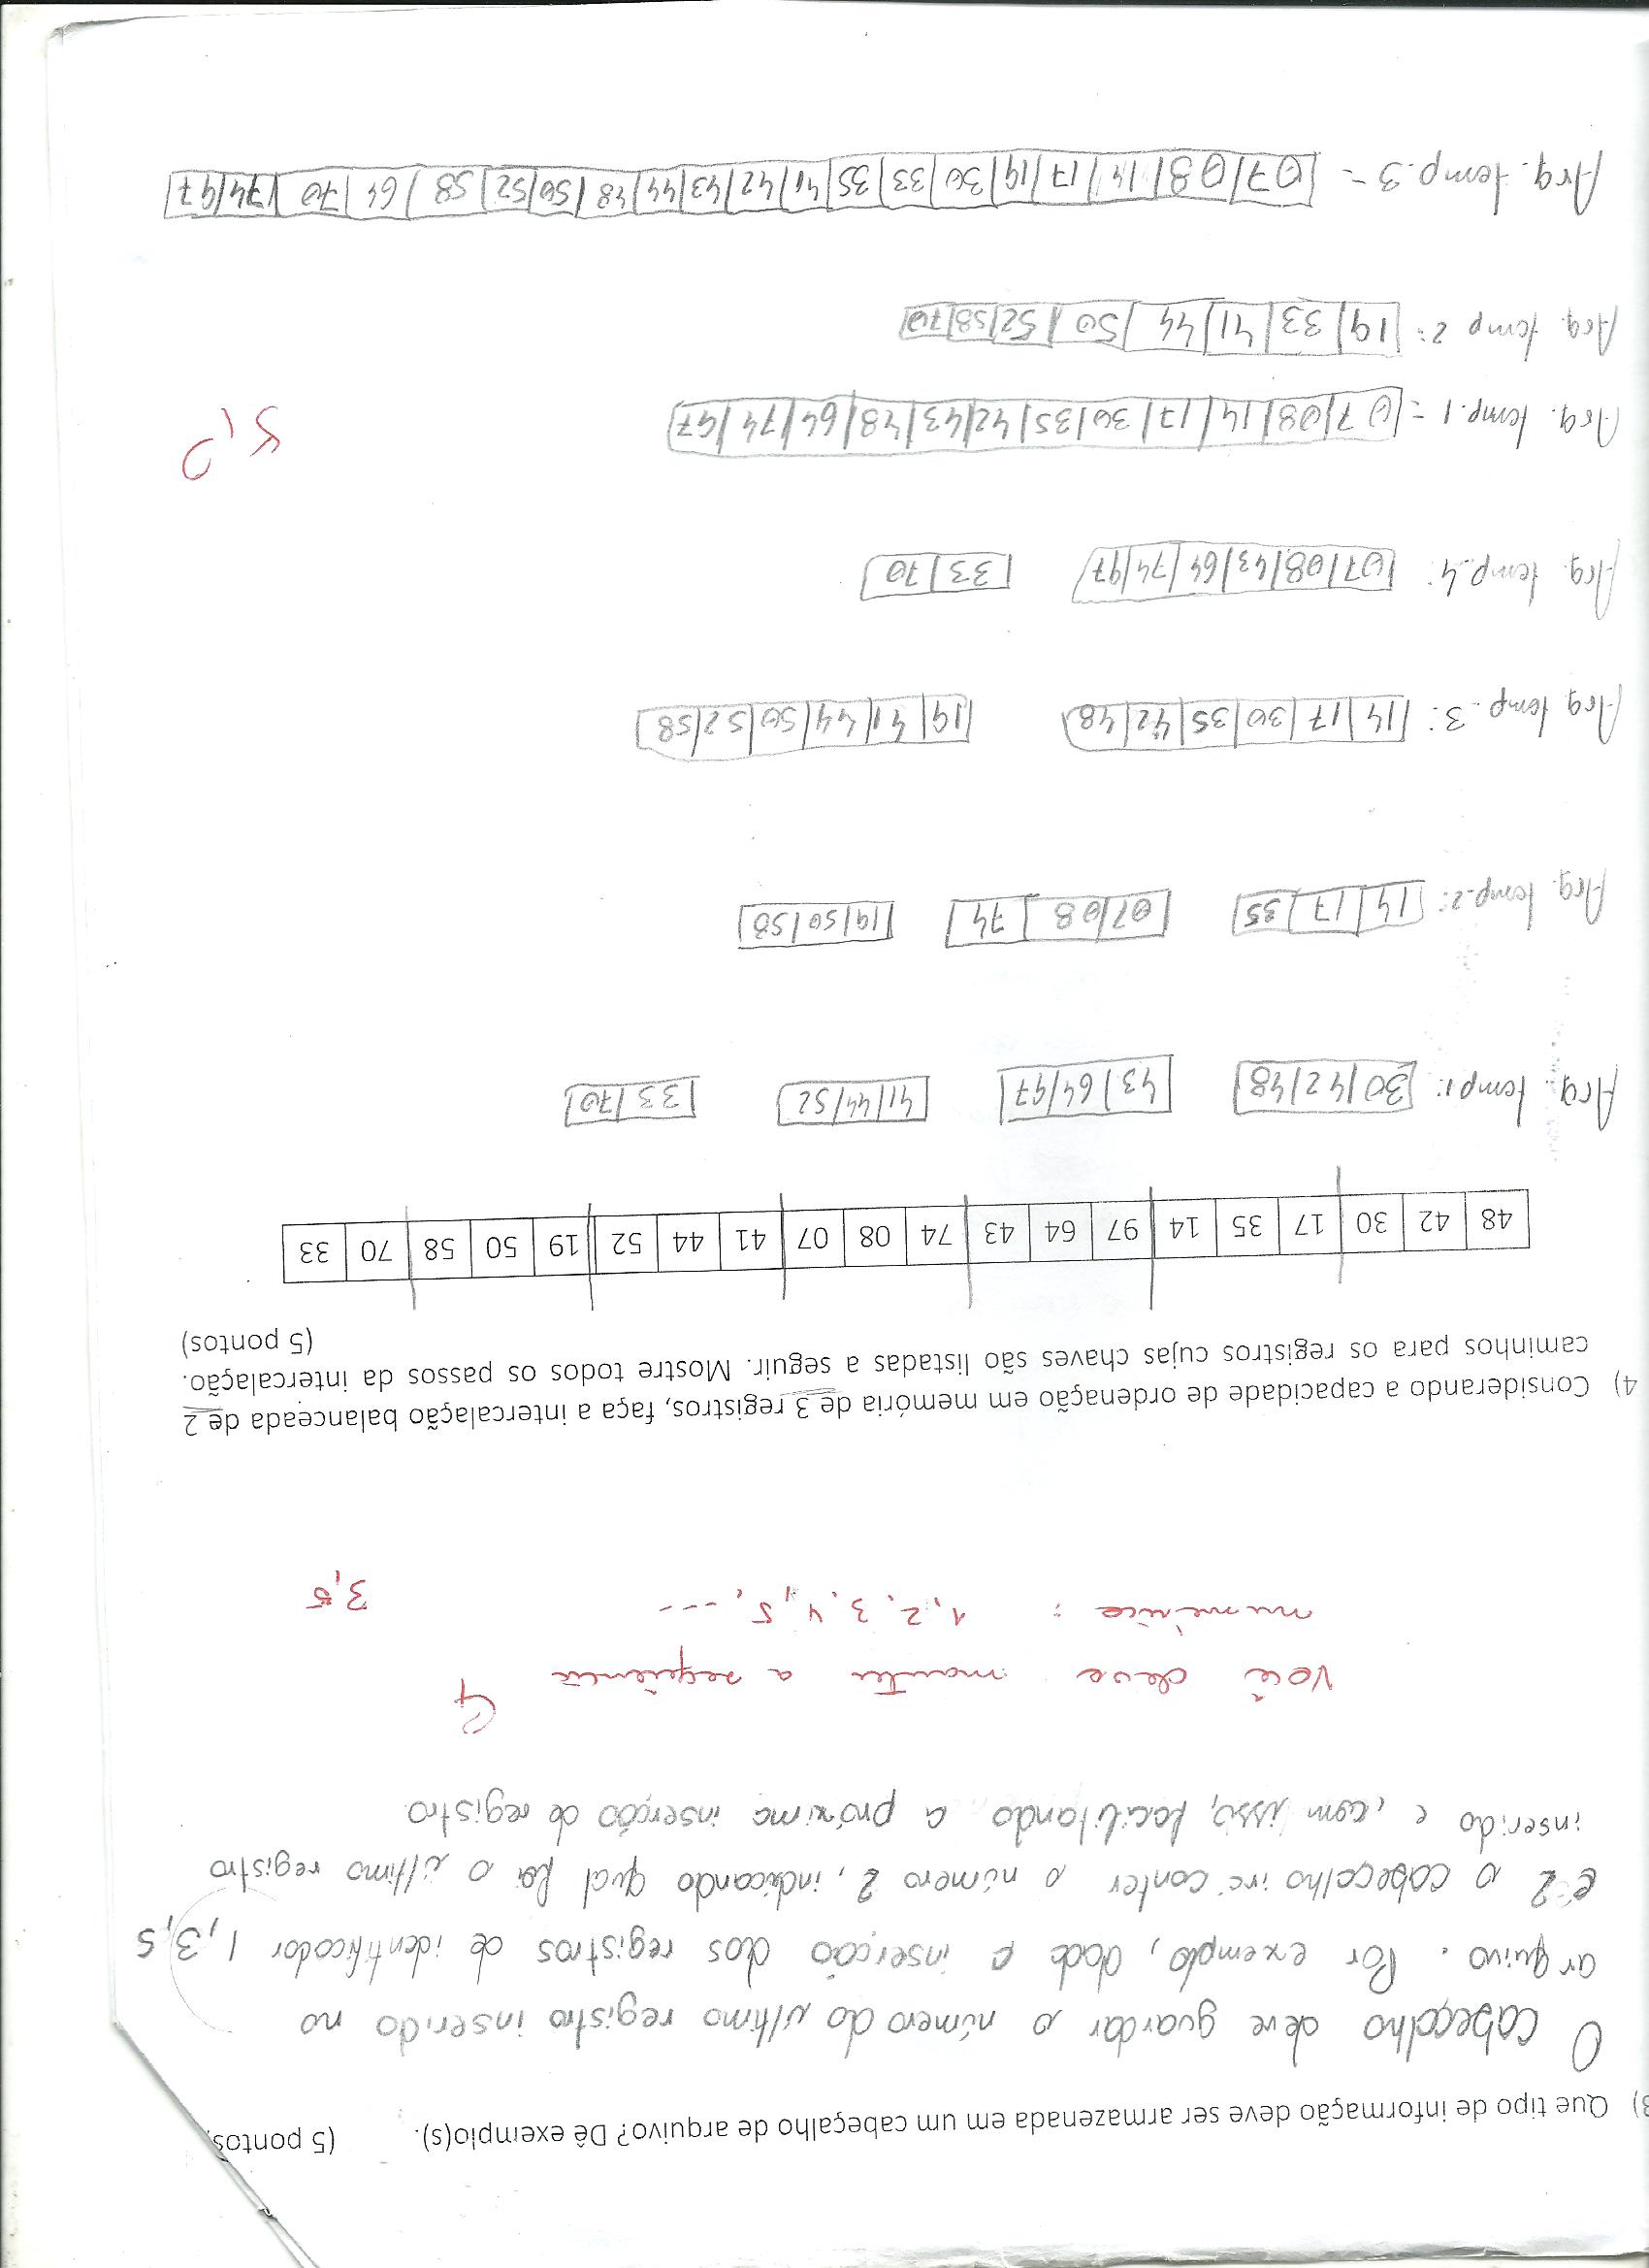 3) Que tipo de informação deve ser armazenada em um cabeçalho de arquivo? Dê exemplo(s). (5 pontos)
O cabeçalho deve guardar o número do ultimo registro inserido no
arquivo. Por exemplo, dada a inserção dos registros de identificador 1, 3, 5
e 2 o cabeçalho irá conter o número 2, indicando qual foi o último registro
inserido e, com isso, facilitando a próxima inserção de registro.
Você deve manter a seqüência
numérica: 1, 2, 3, 4, 5, ---
3,5
4) Considerando a capacidade de ordenação em memória de 3 registros, faça a intercalação balanceada de 2
caminhos para os registros cujas chaves são listadas a seguir. Mostre todos os passos da intercalação.
(5 pontos)
48 42 30 17 35 14 97 64 43 74 08 07 41 44 52 19 50 58 70 33
Arq. temp1: 30 42 48 43 64 97 41 44 52 33 70
Arq. temp.2: 14 17 35 07 08 74 19 50 58
Arq temp. 3: 14 17 30 35 42 48 19 41 44 50 52 58
Arq. temp.4: 07 08 43 64 74 97 33 70
Arq. temp.1 = 07 08 14 17 30 35 42 43 48 64 74 97
5,0
Arq. temp 2: 19 33 41 44 50 52 58 70
Arq. temp.3 = 07 08 14 17 19 30 33 35 41 42 43 44 48 50 52 58 64 70 74 97